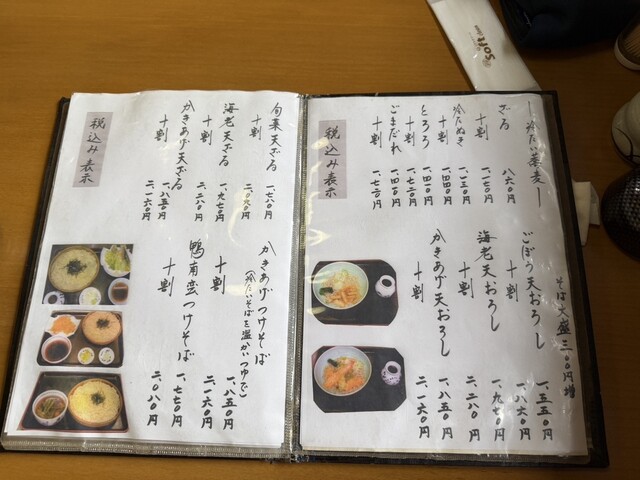 —冷たい蕎麦—
ざる 八六〇円
十割 一.一七〇円
冷たぬき 一.一三〇円
十割 一.四四〇円
とろろ 一.四一〇円
十割 一.七二〇円
ごまだれ 一.四一〇円
十割 一.七二〇円
税込み表示
そば大盛三〇〇円増
ごぼう天おろし 一.五五〇円
十割 一.八六〇円
海老天おろし 一.九七〇円
十割 二.二八〇円
かきあげ天おろし 一.八五〇円
十割 二.一六〇円
旬菜天ざる 一.七八〇円
十割 二.〇九〇円
海老天ざる 一.九七〇円
十割 二.二八〇円
かきあげ天ざる 一.八五〇円
十割 二.一六〇円
税込み表示
かきあげつけそば 一.八五〇円
(冷たいそばを温かいつゆで)
十割 二.一六〇円
鴨南蛮つけそば 一.七七〇円
十割 二.〇八〇円
soft